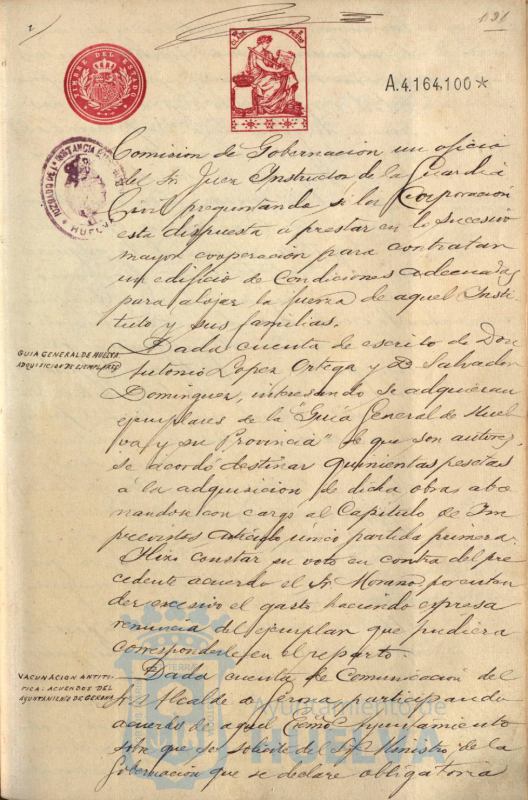 131
TIMBRE DEL ESTADO
A.4.164.100*
JUZGADO DE 1ª INSTANCIA E INSTRUCCION
HUELVA
Comision de Gobernacion un oficio
del Sr Juez Instructor de la Guardia
Civil preguntando si la Corporación
esta dispuesta a prestar en lo sucesivo
mayor cooperacion para contratar
un edificio de condiciones adecuadas
para alojar la fuerza de aquel Insti-
tuto y sus familias.
GUIA GENERAL DE HUELVA
ADQUISICION DE EJEMPLARES
Dada cuenta de escrito de Don
Antonio Lopez Ortega y D. Salvador
Dominguez, interesando se adquieran
ejemplares de la "Guia General de Huel-
va y su Provincia" de que son autores
se acordó destinar quinientas pesetas
á la adquisicion de dicha obra abo-
nandose con cargo al Capitulo de Im-
previstos articulo único partida primera.
Hizo constar su voto en contra del pre-
cedente acuerdo el Sr Morano por enten-
der excesivo el gasto haciendo expresa
renuncia del ejemplar que pudiera
corresponderle en el reparto.
VACUNACION ANTITI-
FICA: ACUERDOS DEL
AYUNTAMIENTO DE GERONA
Dada cuenta de comunicacion del
Sr Alcalde de Gerona participando
acuerdo de aquel Excmo Ayuntamiento
sobre que se solicite del Sr Ministro de la
Gobernación que se declare obligatoria
Ayuntamiento de
HUELVA